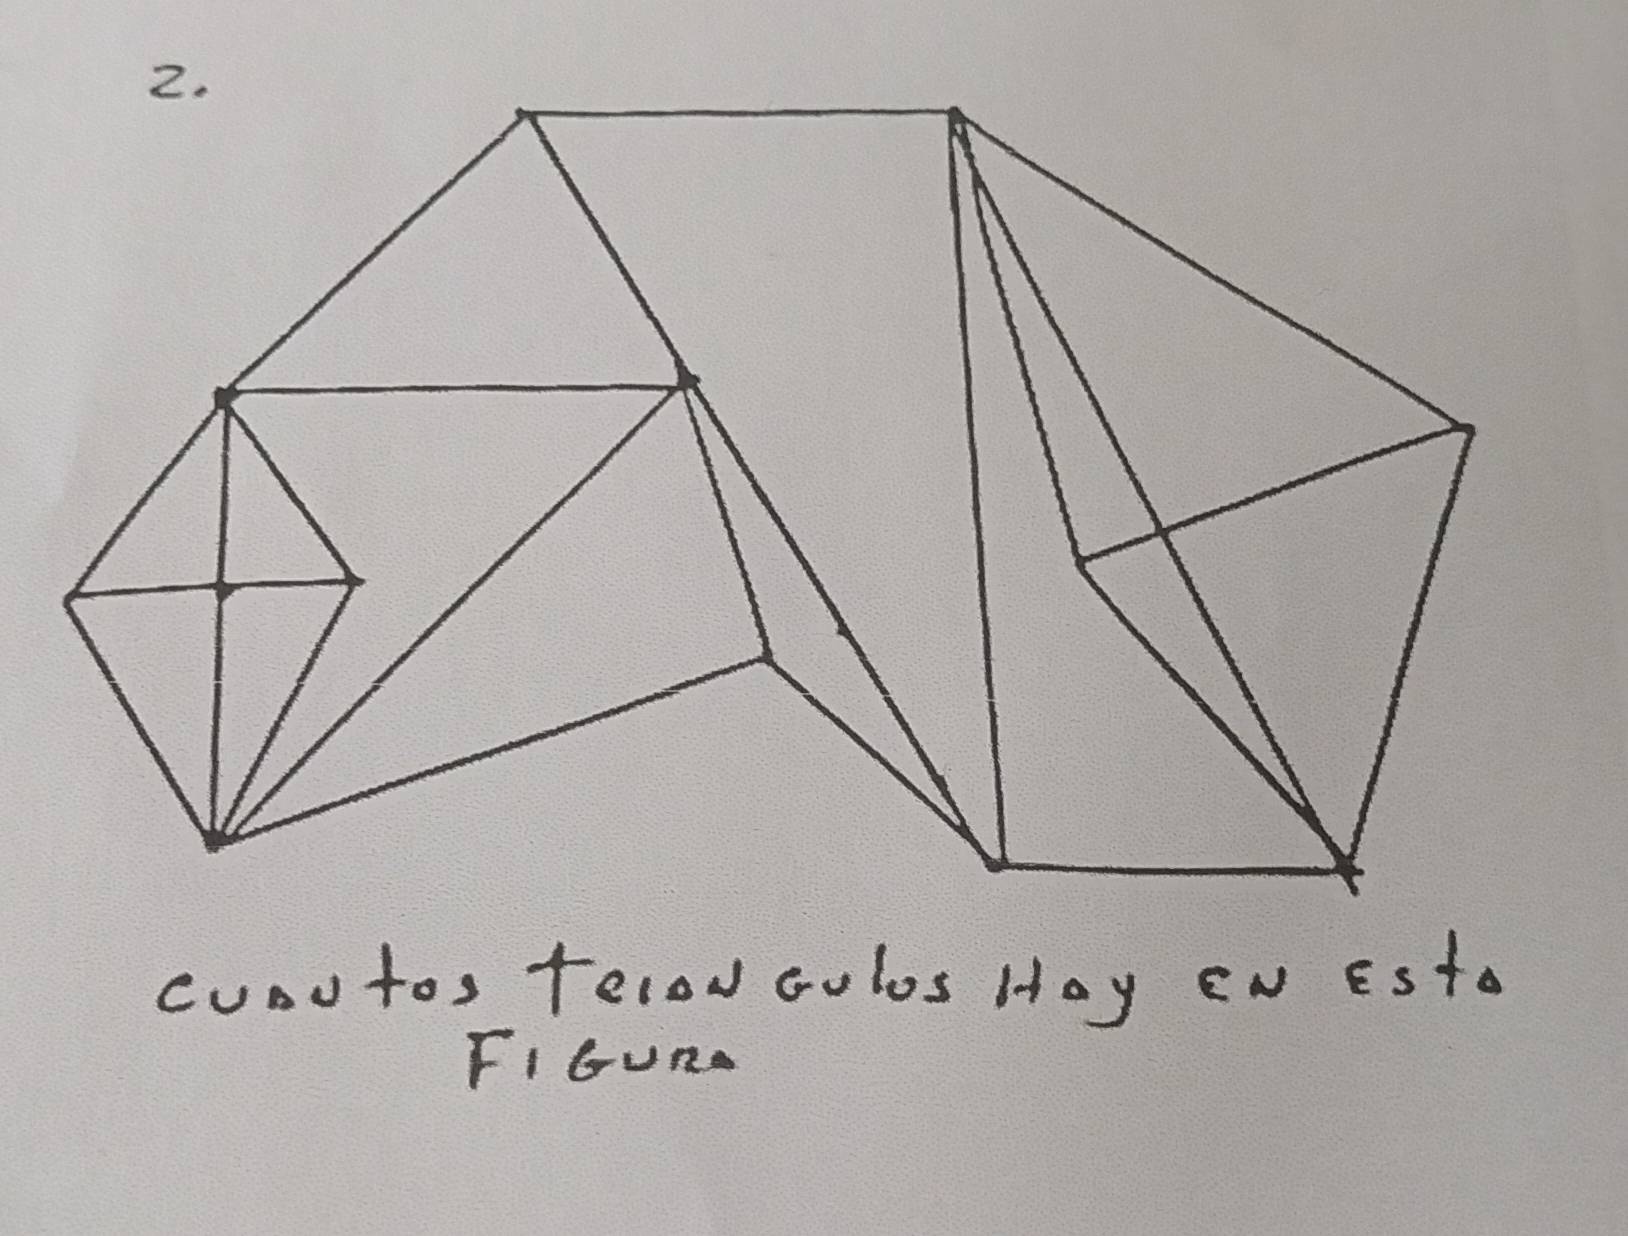 2.
CUANtOS tRIANGULOS HAy EN EStA
FIGURA